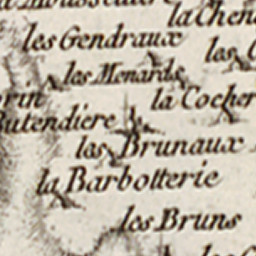 la Chen
les Gendraux
les
les Menards
la Cocher
orin
Butendiere
les Brunaux
la Barbotterie
les Bruns